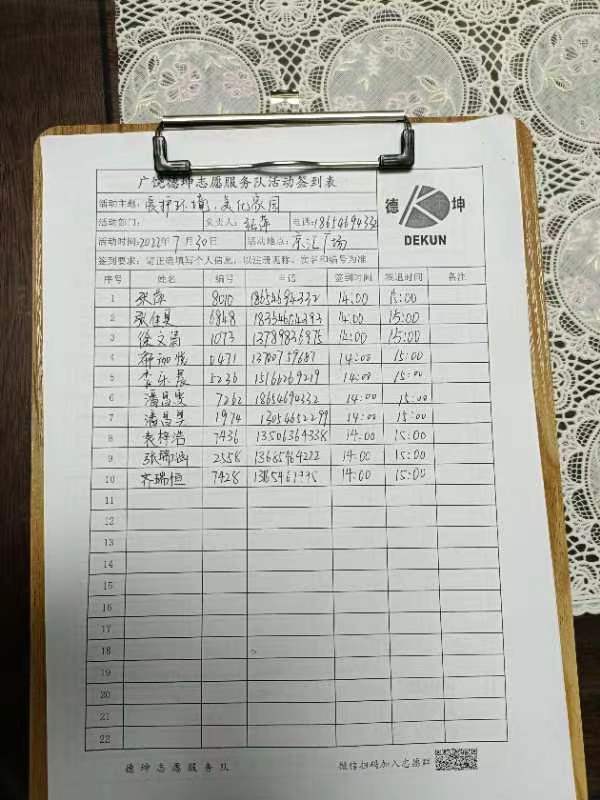 广饶德坤志愿服务队活动签到表
活动主题：爱护环境、美化家园
德 坤
DEKUN
活动部门： 负责人：张萍 电话：18654694332
活动时间：2022年7月30日 活动地点：乐汇广场
签到要求：需正楷填写个人信息，以注册昵称、实名和编号为准
序号 姓名 编号 电话 签到时间 签退时间 备注
1 张萍 8010 18654694332 14:00 15:00
2 张佳昊 6848 18354654393 14:00 15:00
3 徐文菊 1073 13789836975 14:00 15:00
4 0471 13780759687 14:00 15:00
5 李乐晨 5236 15166269219 14:00 15:00
6 潘昌雯 7262 18654694332 14:00 15:00
7 潘昌昊 1974 13054652299 14:00 15:00
8 袁梓浩 7436 13506364338 14:00 15:00
9 张瑞涵 2558 14:00 15:00
10 齐瑞恒 7428 14:00 15:00
11
12
13
14
15
16
17
18
19
20
21
22
德坤志愿服务队 微信扫码加入志愿群